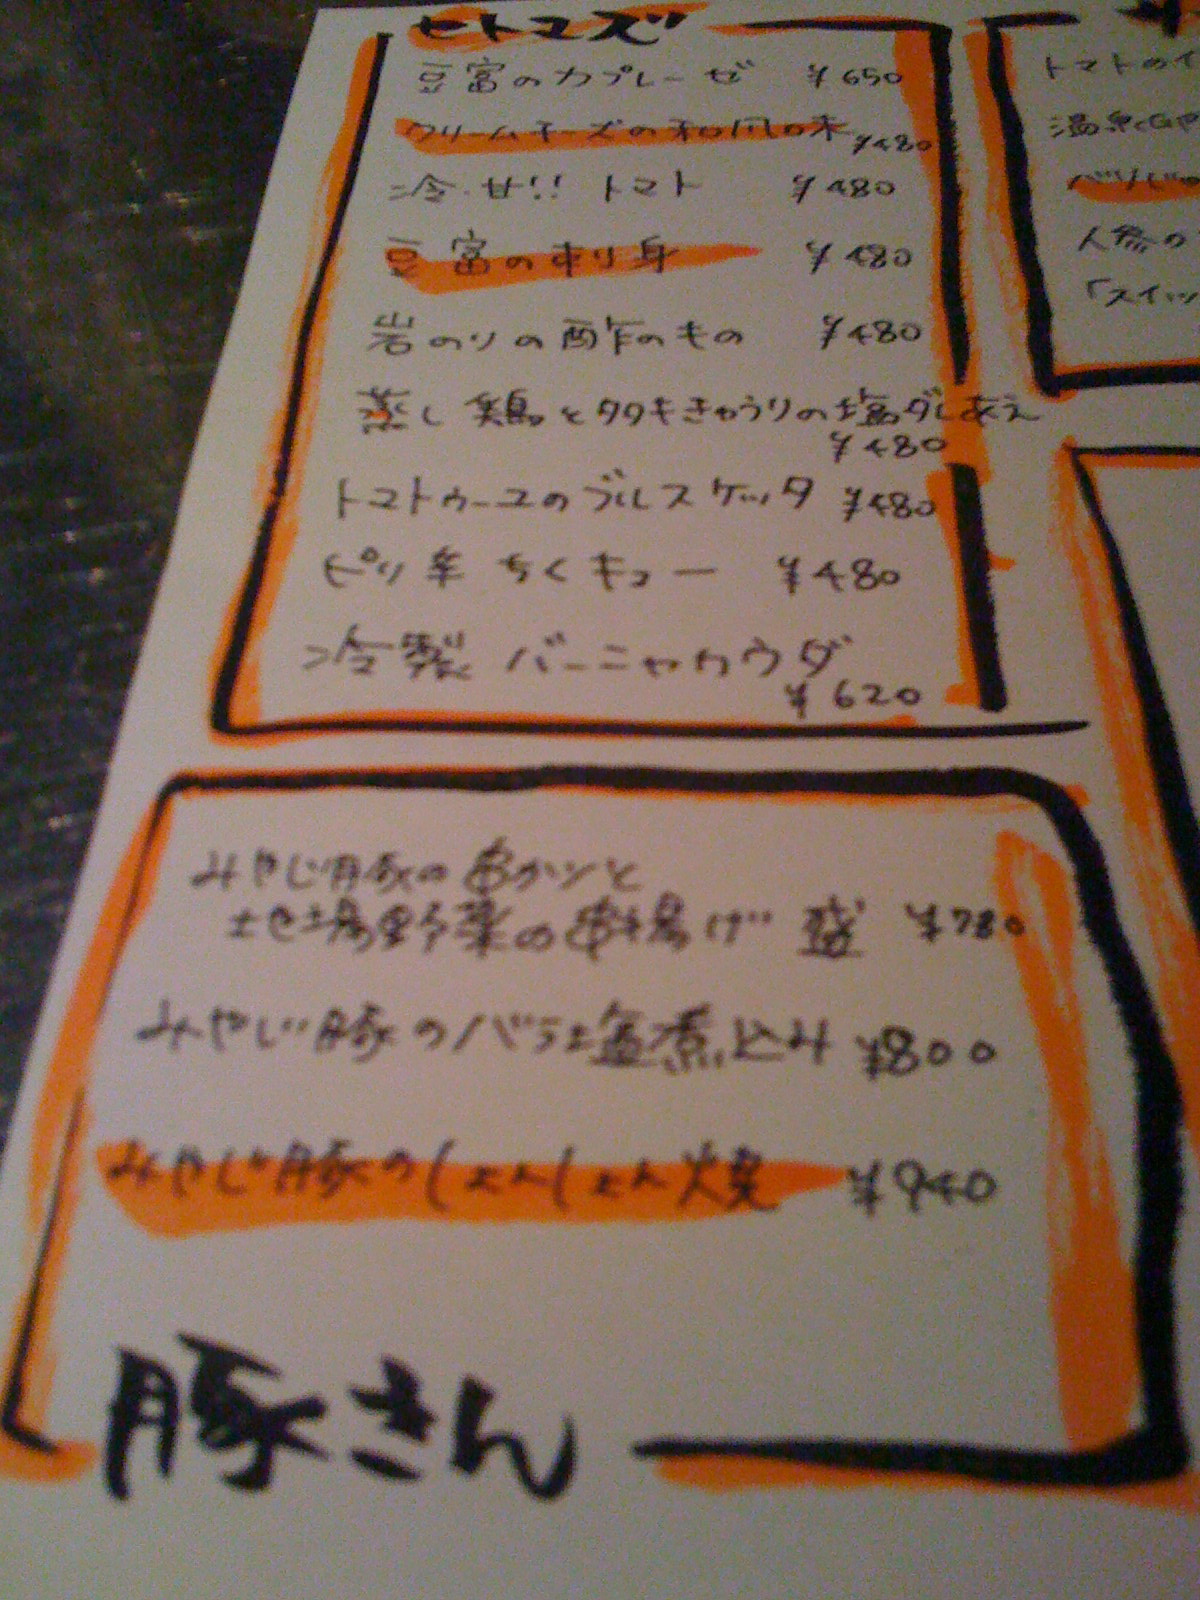 ヒトマズ
豆富のカプレーゼ ¥650
クリームチーズの和風の味 ¥480
冷・甘!! トマト ¥480
豆富の刺身 ¥480
岩のりの酢のもの ¥480
蒸し鶏とタタキきゅうりの塩ダレあえ
¥480
トマトゥーユのブルスケッタ ¥480
ピリ辛 ちくキュー ¥480
冷製 バーニャカウダ
¥620
みやじ豚の串かつと
地場野菜の串揚げ 盛 ¥780
みやじ豚のバラ塩煮込み ¥800
みやじ豚のしょんしょん焼 ¥940
豚さん
トマトのイ
温泉
バリバリ
人参の
「スイッ